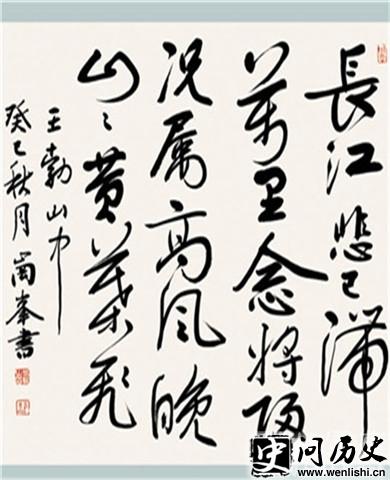 長江悲已滞
萬里念将歸
况属高风晚
山々黄葉飞
王勃山中
癸巳秋月 峯書
问历史
www.wenlishi.cn